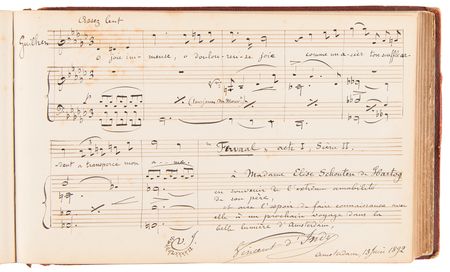 Assez lent
Guilhen
O joie im-mense, o doulou-reu-se joie comme un a-cier ton souffle ar-
(toujours
-dent a transpercé mon a-me.
Fervaal, acte I, Scène II.
à Madame Elise Schouten de Hartog
en souvenir de l'extrême amabilité
de son père,
et avec l'espoir de faire connaissance avec
elle à un prochain voyage dans la
belle lumière d'Amsterdam,
Vincent d'Indy
Amsterdam, 13 Juin 1892